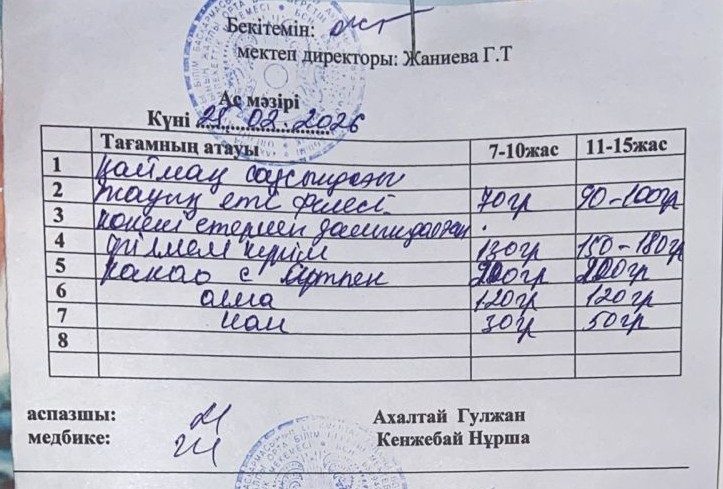 Бекітемін:
мектеп директоры: Жаниева Г.Т
Ас мәзірі
Күні 28.02.2026
Тағамның атауы 7-10жас 11-15жас
1 қаймақ
2 тауық еті филесі 70гр 90-100гр
3 көкөністермен
4 күріш 130гр 150-180гр
5 какао с сүтпен 200гр 200гр
6 алма 120гр 120гр
7 нан 30гр 50гр
8
аспазшы: Ахалтай Гулжан
медбике: Кенжебай Нұрша